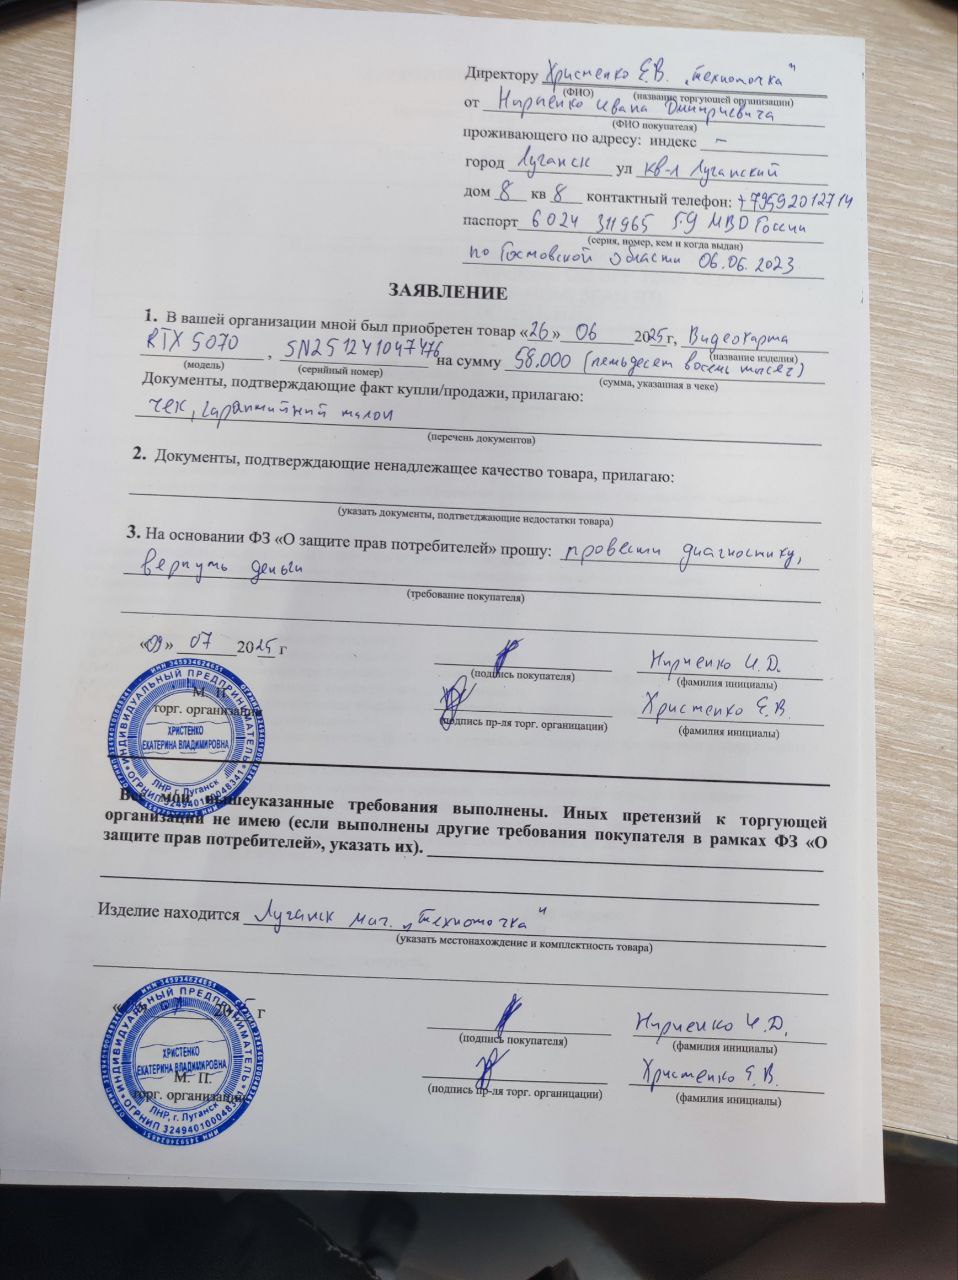 Директору Христенко Е.В. „Техноточка"
(ФИО) (название торгующей организации)
от Нирпенко Ивана Дмитриевича
(ФИО покупателя)
проживающего по адресу: индекс –
город Луганск ул кв-л Луганский
дом 8 кв 8 контактный телефон: +79592012714
паспорт 6024 311965 ГУ МВД России
(серия, номер, кем и когда выдан)
по Ростовской области 06.06.2023
ЗАЯВЛЕНИЕ
1. В вашей организации мной был приобретен товар «26» 06 2025г, Видеокарта
(название изделия)
RTX 5070, SN251241047476 на сумму 58.000 (пятьдесят восемь тысяч)
(модель) (серийный номер) (сумма, указанная в чеке)
Документы, подтверждающие факт купли/продажи, прилагаю:
чек, гарантийний талон
(перечень документов)
2. Документы, подтверждающие ненадлежащее качество товара, прилагаю:
(указать документы, подтветджающие недостатки товара)
3. На основании ФЗ «О защите прав потребителей» прошу: провести диагностику,
вернуть деньги
(требование покупателя)
«09» 07 2025 г
(подпись покупателя) (фамилия инициалы)
М. П.
торг. организации Христенко Е.В.
(подпись пр-ля торг. органицации) (фамилия инициалы)
ИНДИВИДУАЛЬНЫЙ ПРЕДПРИНИМАТЕЛЬ
ХРИСТЕНКО
ЕКАТЕРИНА ВЛАДИМИРОВНА
ЛНР, г. Луганск
ОГРНИП 324940100048341
ИНН 345934624651
Все мои вышеуказанные требования выполнены. Иных претензий к торгующей
организации не имею (если выполнены другие требования покупателя в рамках ФЗ «О
защите прав потребителей», указать их).
Изделие находится Луганск маг. „Техноточка"
(указать местонахождение и комплектность товара)
г
(подпись покупателя) (фамилия инициалы)
М. П.
торг. организации Христенко Е.В.
(подпись пр-ля торг. органицации) (фамилия инициалы)
ИНДИВИДУАЛЬНЫЙ ПРЕДПРИНИМАТЕЛЬ
ХРИСТЕНКО
ЕКАТЕРИНА ВЛАДИМИРОВНА
ЛНР, г. Луганск
ОГРНИП 324940100048341
ИНН 345934624651